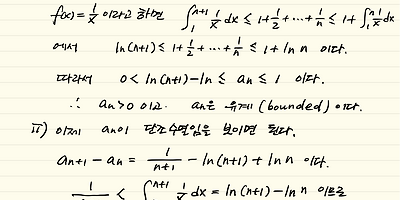 f(x) = 1/x 이라고 하면 ∫₁ⁿ⁺¹ 1/x dx ≤ 1+1/2+···+1/n ≤ 1+∫₁ⁿ 1/x dx
에서 ln(n+1) ≤ 1+1/2+···+1/n ≤ 1+ln n 이다.
따라서 0 < ln(n+1)-ln ≤ an ≤ 1 이다.
∴ an>0 이고 an은 유계(bounded)이다.
ii) 이제 an이 단조수열임을 보이면 된다.
an+1 - an = 1/(n+1) - ln(n+1) + ln n 이다.
1/ < ∫ⁿ⁺¹ 1/x dx = ln(n+1)-ln n 이므로